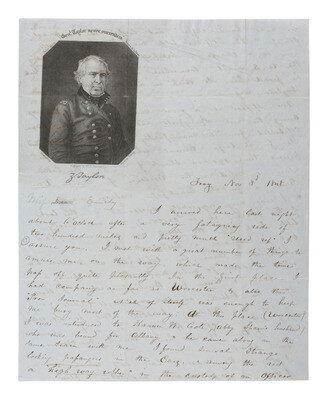 Genl. Taylor never surrenders
Z Taylor
Troy Nov 3d 1848
My Dear Emily
I arrived here last night
about 6 o'clock after a very fatiguing ride of
two hundred miles and pretty much "used up" I
assure you. I met with a great number of things to
amuse me on the way which made the time
pass off quite pleasantly. In the first place I
had company as far as Worcester
was enough to keep
me busy most of the way. At this place (Worcester)
I was introduced to
who was bound for Albany & he came along in the
same train with me. I found several strange
looking passengers in the Cars & among the rest
a in the custody of an officer